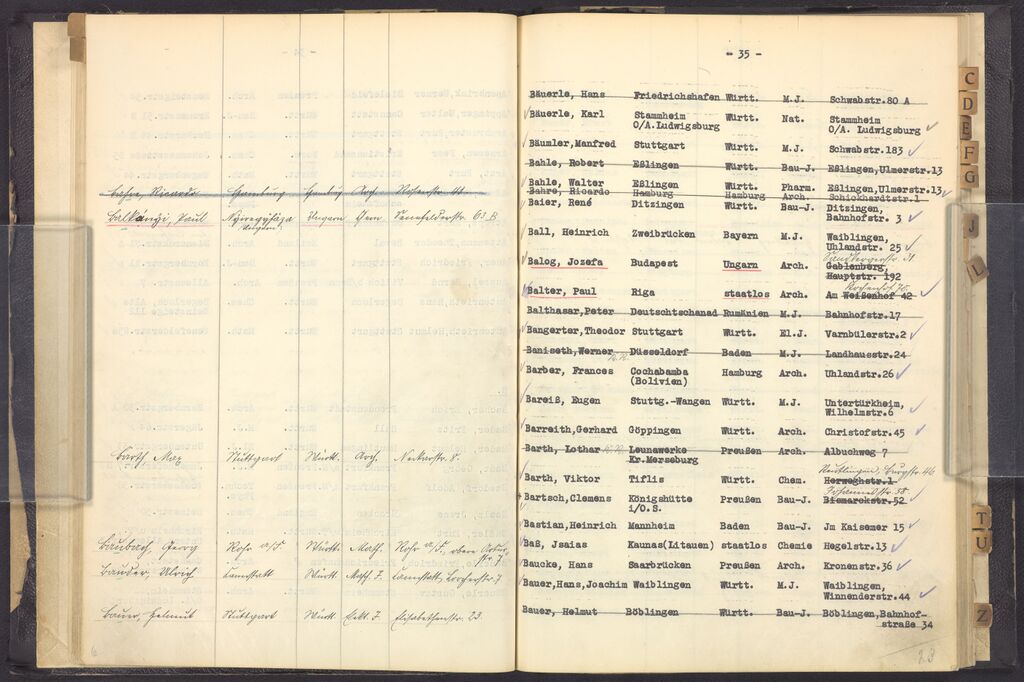 Balkányi, Paul Nyiregyháza Ungarn Chem. Seefelderstr. 63 B
Ungarn
Barth, Max Stuttgart Württ. Arch. Neckarstr. 8.
Baubach, Georg Rohr a/F Württ. Math. Rohr a/F.
Bauder, Ulrich Cannstatt Württ. Masch. I. Cannstatt,
Bauer, Helmut Stuttgart Württ. Elekt. I. Elisabethenstr. 23.
- 35 -
Bäuerle, Hans Friedrichshafen Württ. M.J. Schwabstr.80 A
Bäuerle, Karl Stammheim Württ. Nat. Stammheim
O/A.Ludwigsburg O/A. Ludwigsburg
Bäumler,Manfred Stuttgart Württ. M.J. Schwabstr.183
Bahle, Robert Eßlingen Württ. Bau-J. Eßlingen,Ulmerstr.13
Bahle, Walter Eßlingen Württ. Pharm. Eßlingen,Ulmerstr.13
Bahre, Ricardo Hamburg Hamburg Arch. Schickhardtstr.1
Baier, René Ditzingen Württ. Bau-J. Ditzingen,
Bahnhofstr. 3
Ball, Heinrich Zweibrücken Bayern M.J. Waiblingen,
Uhlandstr. 25
Balog, Jozefa Budapest Ungarn Arch. Gablenberg,
Hauptstr. 192
Balter, Paul Riga staatlos Arch. Am Weißenhof 42
Balthasar,Peter Deutschtschanad Rumänien M.J. Bahnhofstr.17
Bangerter,Theodor Stuttgart Württ. El.J. Varnbülerstr.2
Baniseth,Werner Düsseldorf Baden M.J. Landhausstr.24
Barber, Frances Cochabamba Hamburg Arch. Uhlandstr.26
(Bolivien)
Bareiß, Eugen Stuttg.-Wangen Württ. M.J. Untertürkheim,
Wilhelmstr.6
Barreith,Gerhard Göppingen Württ. Arch. Christofstr.45
Barth, Lothar Leunawerke Preußen Arch. Albuchweg 7
Kr.Merseburg
Reutlingen, Burgstr. 46
Barth, Viktor Tiflis Württ. Chem. Herweghstr.1
Johannesstr. 58.
Bartsch,Clemens Königshütte Preußen Bau-J. Bismarckstr.52
i/O.S.
Bastian,Heinrich Mannheim Baden Bau-J. Jm Kaisemer 15
Baß, Jsaias Kaunas(Litauen) staatlos Chemie Hegelstr.13
Baucke, Hans Saarbrücken Preußen Arch. Kronenstr.36
Bauer,Hans,Joachim Waiblingen Württ. M.J. Waiblingen,
Winnenderstr.44
Bauer, Helmut Böblingen Württ. Bau-J. Böblingen,Bahnhof-
straße 34
C
D
E
F
G
J
L
T
U
Z